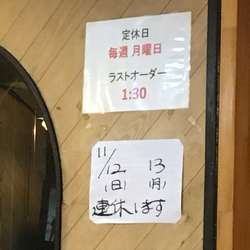 定休日
毎週 月曜日
ラストオーダー
1:30
11/12 13
(日) (月)
連休します